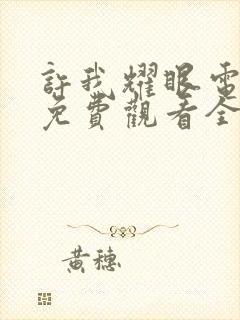 許我耀眼電
免費觀看全
黃穗